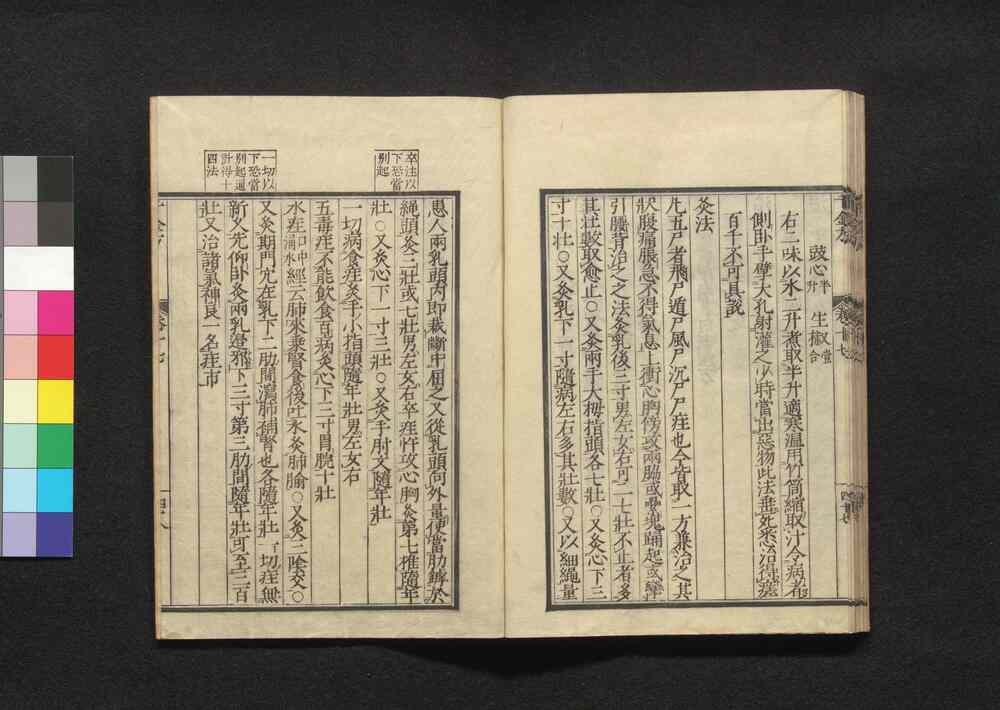 豉心半升　生椒一合
右二味以水二升煮取半升適寒温用竹筒縮取汁令病者
側卧手擘大孔射灌之少時當出惡物此法垂死悉治得瘥
百千不可具説
灸法
凡五尸者飛尸遁尸風尸沉尸尸疰也今皆取一方兼治之其
狀腹痛脹急不得氣息上衝心胸傍攻兩脇或壘塊踊起或攣
引腰背治之之法灸乳後三寸男左女右可二七壯不止者多
其壯數取愈止○又灸兩手大拇指頭各七壯○又灸心下三
寸十壯○又灸乳下一寸隨病左右多其壯數○又以細繩量
卒注以
下恐當
別起
患人兩乳頭内即裁斷中屈之又從乳頭向外量使當肋罅於
繩頭灸三壯或七壯男左女右卒疰忤攻心胸灸第七椎隨年
壯○又灸心下一寸三壯○又灸手肘文隨年壯
一切病食疰灸手小指頭隨年壯男左女右
五毒疰不能飲食百病灸心下三寸胃脘十壯
水疰口中涌水經云肺來乘腎食後吐水灸肺腧○又灸三陰交○
一切以
下恐當
別起通
計得十
四法
又灸期門穴在乳下二肋間瀉肺補腎也各隨年壯一切疰無
新久先仰卧灸兩乳邊邪下三寸第三肋間隨年壯可至三百
壯又治諸氣神良一名疰市